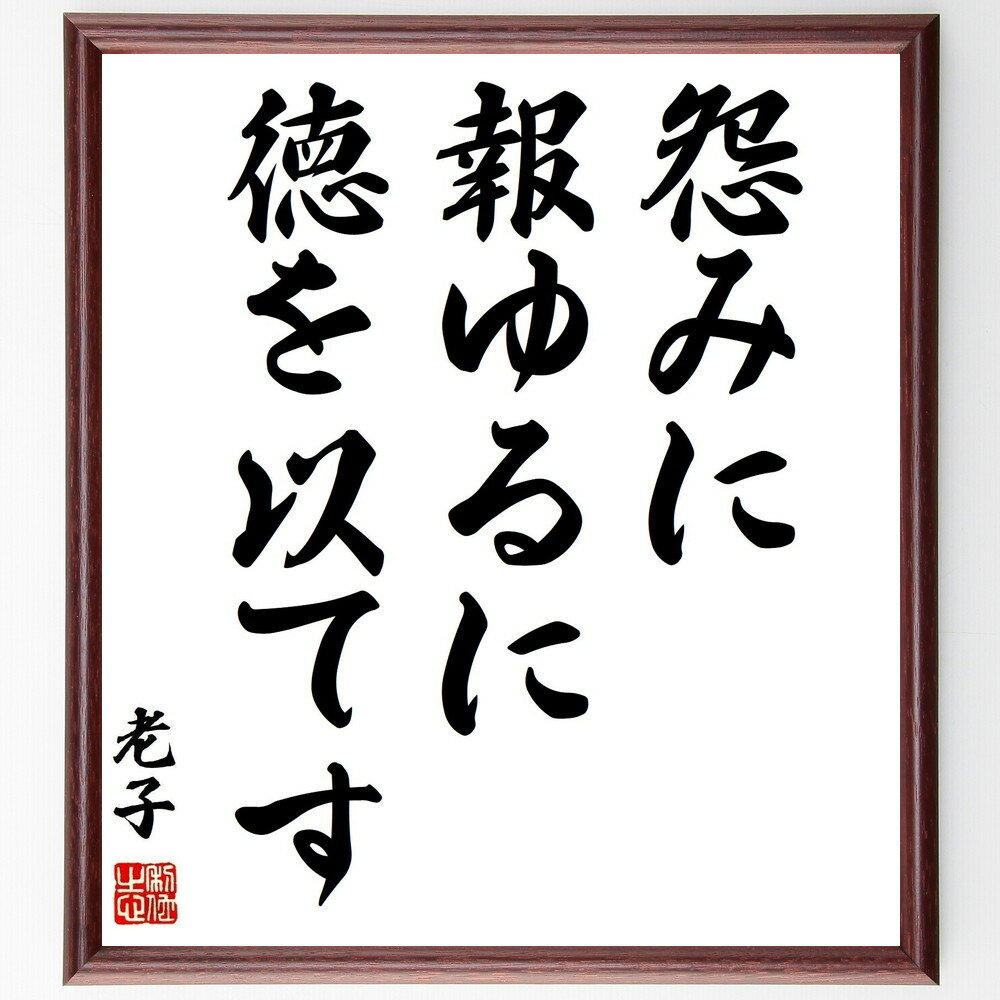 怨みに
報ゆるに
徳を以てす
老子